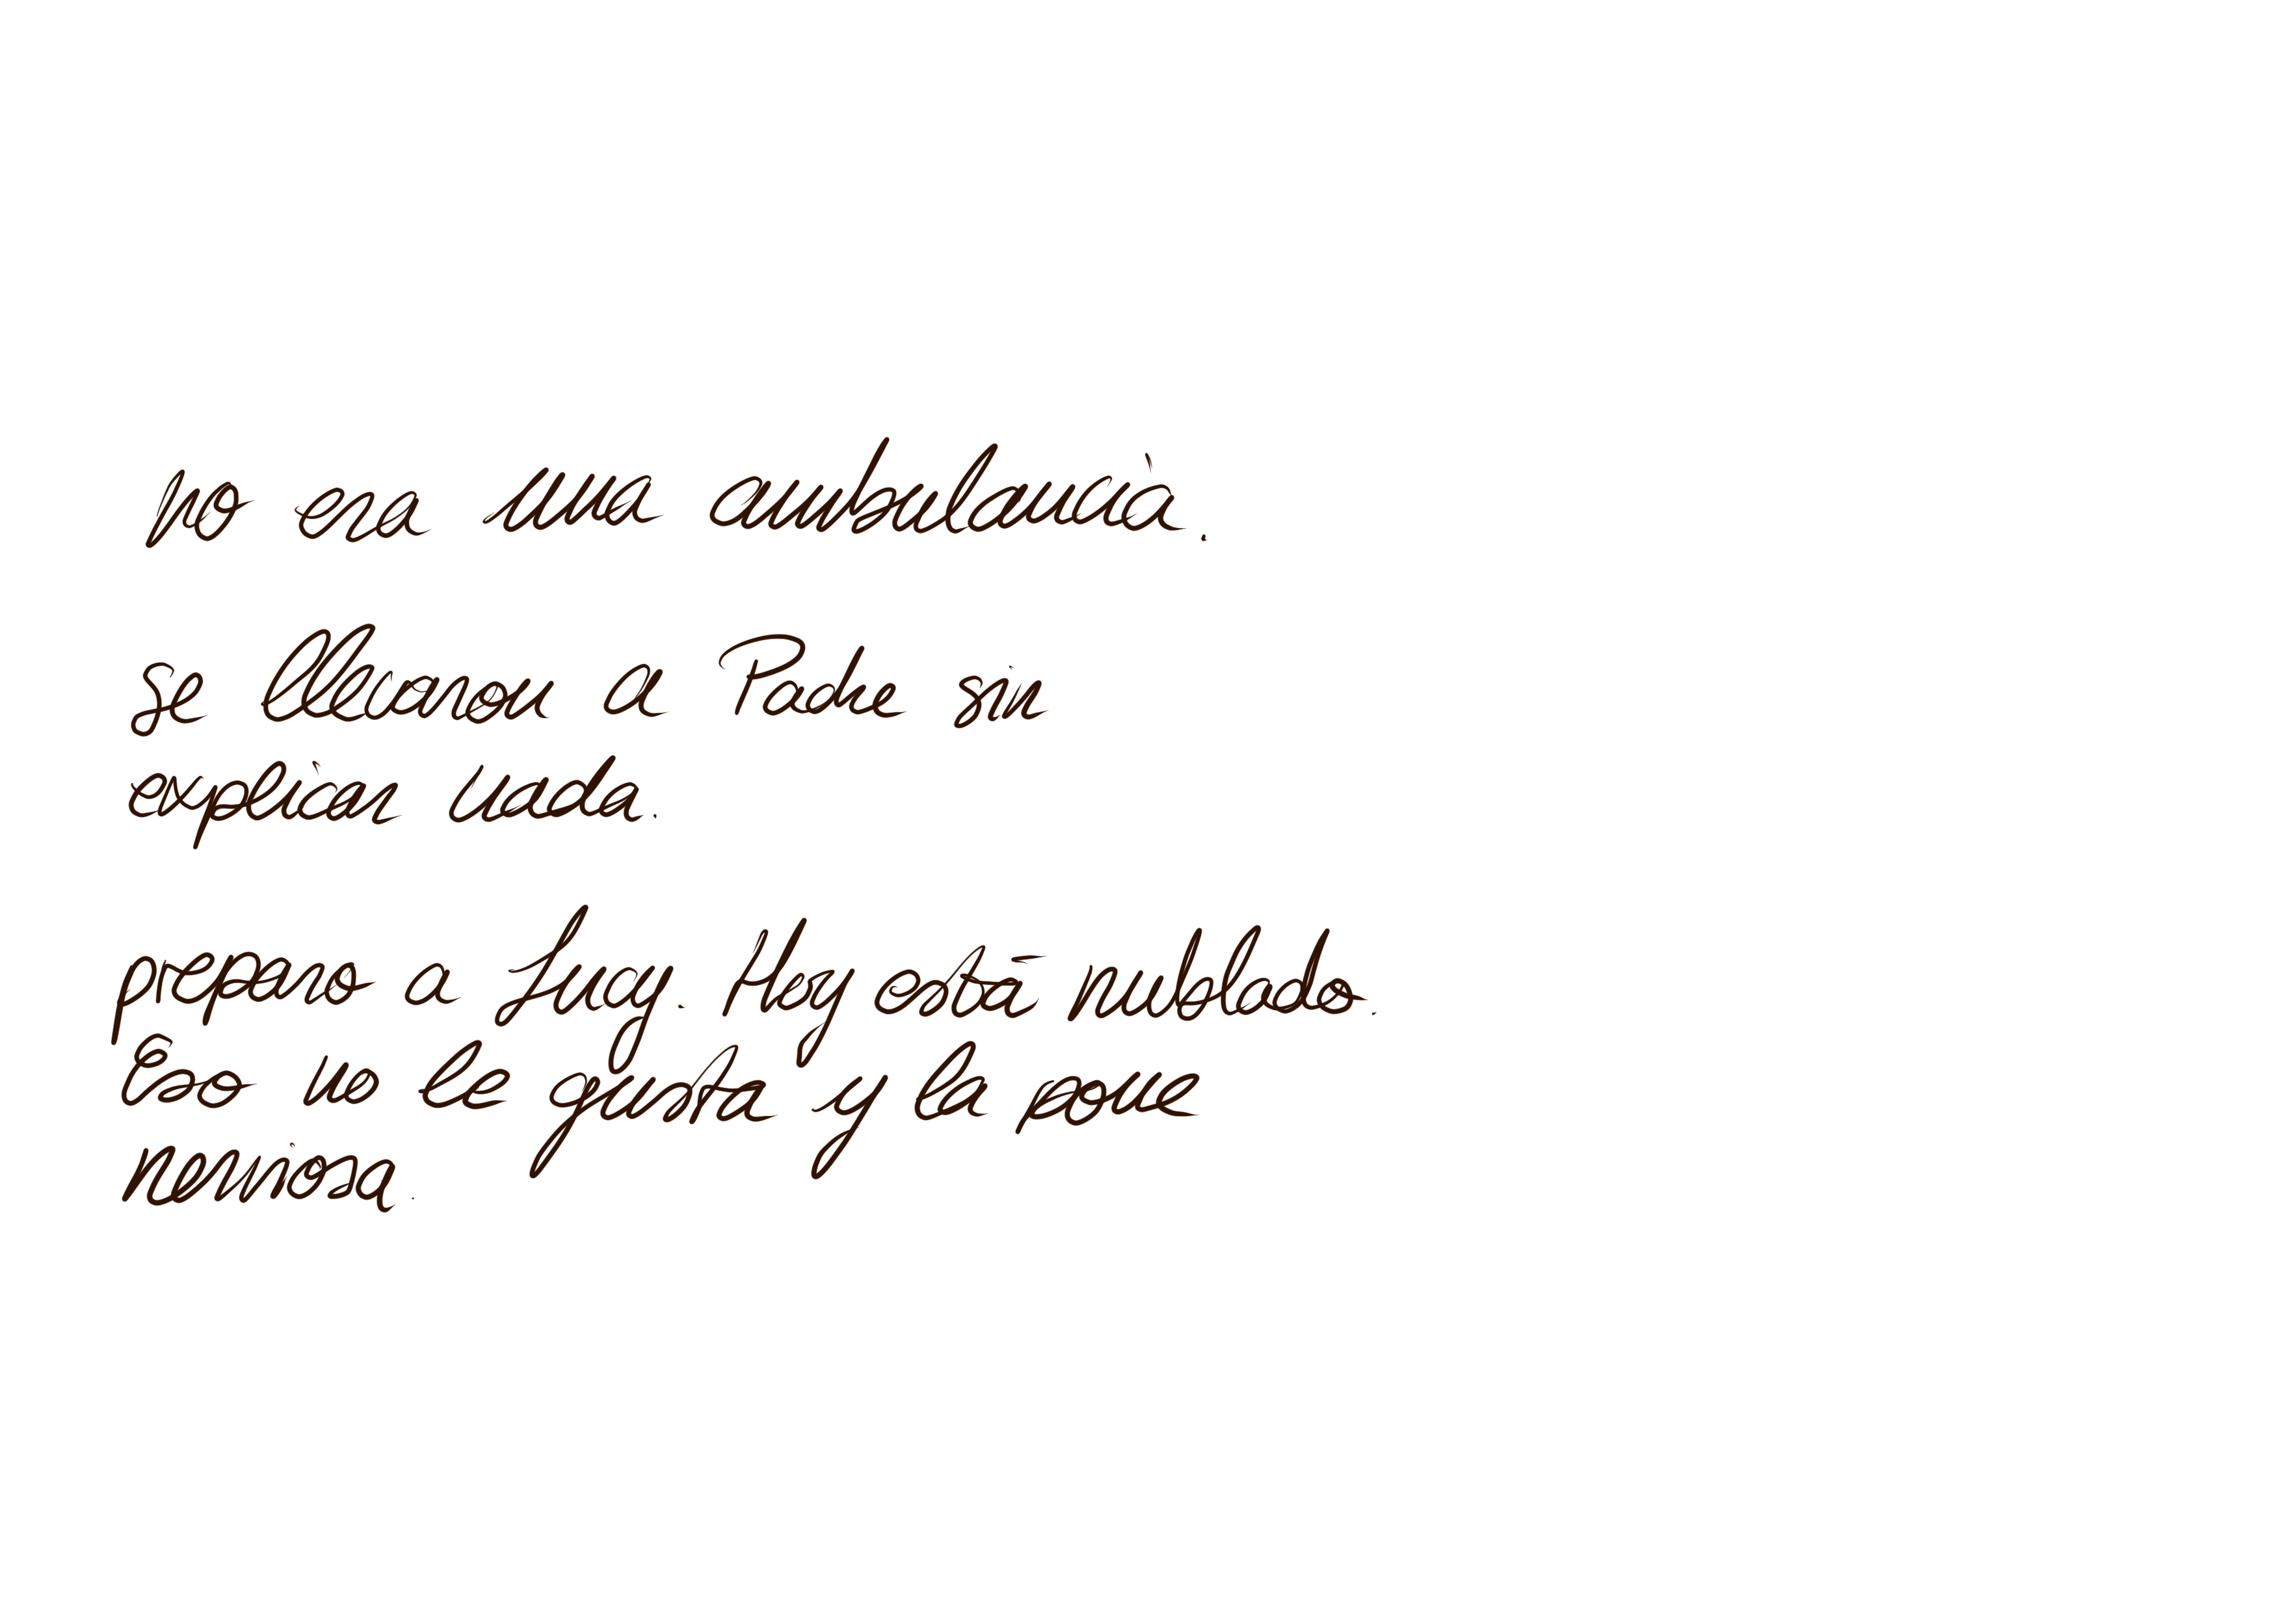 No era una ambulancia.
se llevaron a Padre sin
explicar nada.
preparo a Lucy. Hoy está nublado.
Eso no le gusta y la pone
nerviosa.